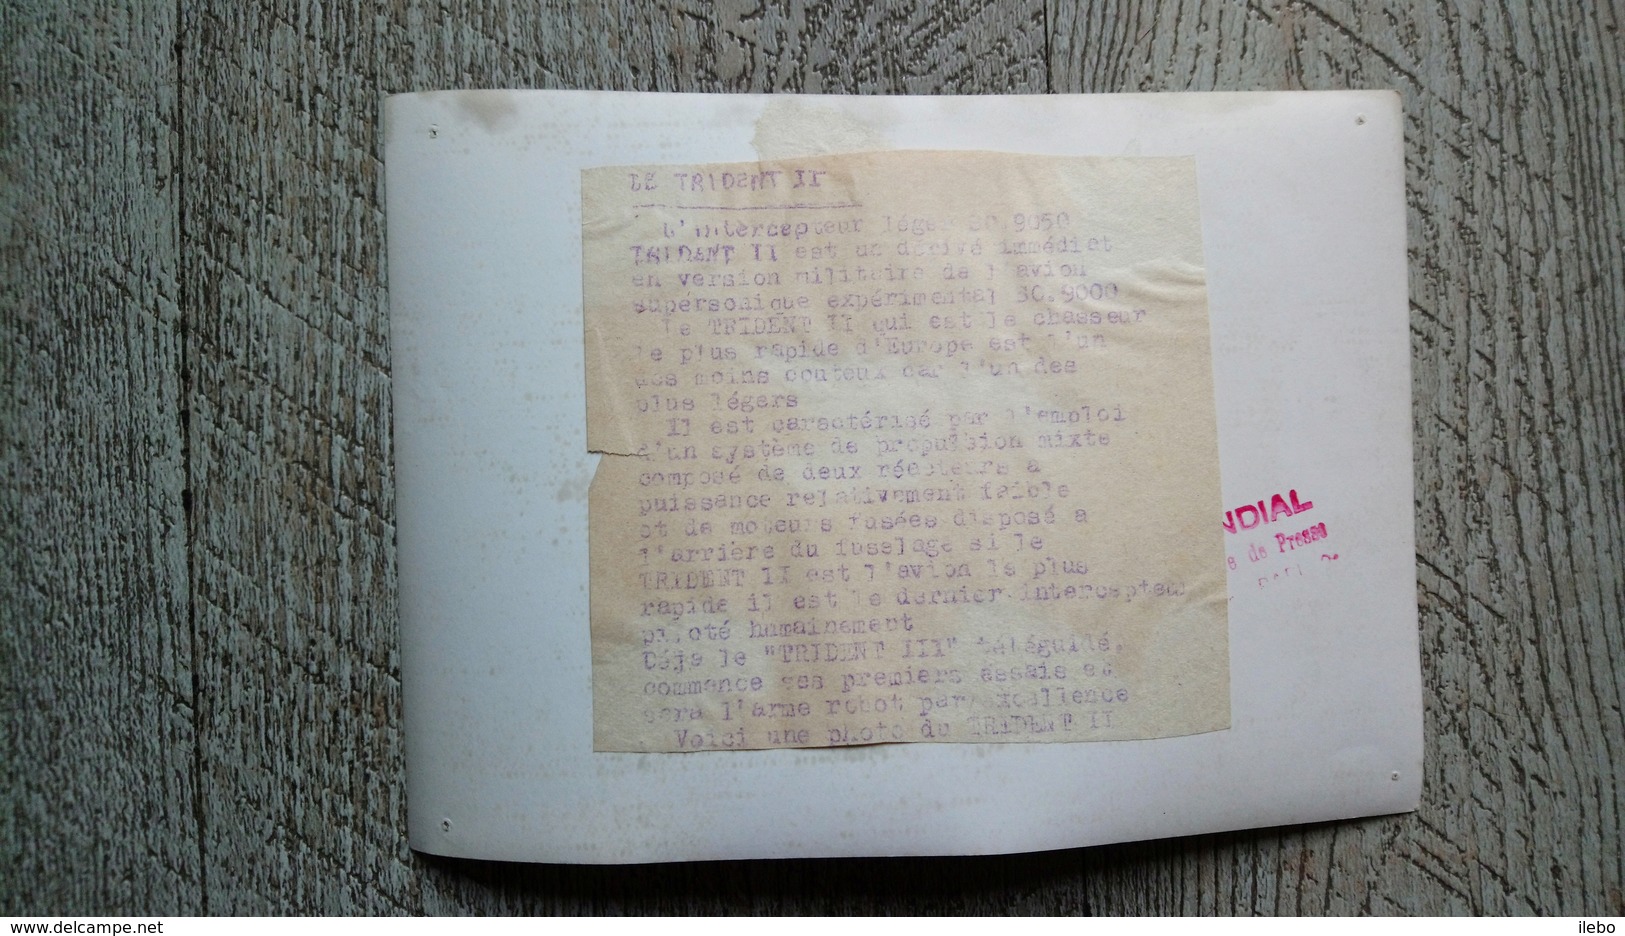 LE TRIDENT II
L'intercepteur léger SO.9050
TRIDENT II est un dérivé immédiat
en version militaire de l'avion
supérsonique expérimental SO.9000
Le TRIDENT II qui est le chasseur
le plus rapide d'Europe est l'un
des moins couteux car l'un des
plus légers
Il est caractérisé par l'emploi
d'un système de propulsion mixte
composé de deux réacteurs a
puissance relativement faible
et de moteurs fusées disposé a
l'arrière du fuselage si le
TRIDENT II est l'avion le plus
rapide il est le dernier intercepteur
piloté humainement
Déja le "TRIDENT III" téléguidé,
commence ses premiers essais et
sera l'arme robot par excellence
Voici une photo du TRIDENT II
NDIAL
de Presse
delcampe.net
ilebo